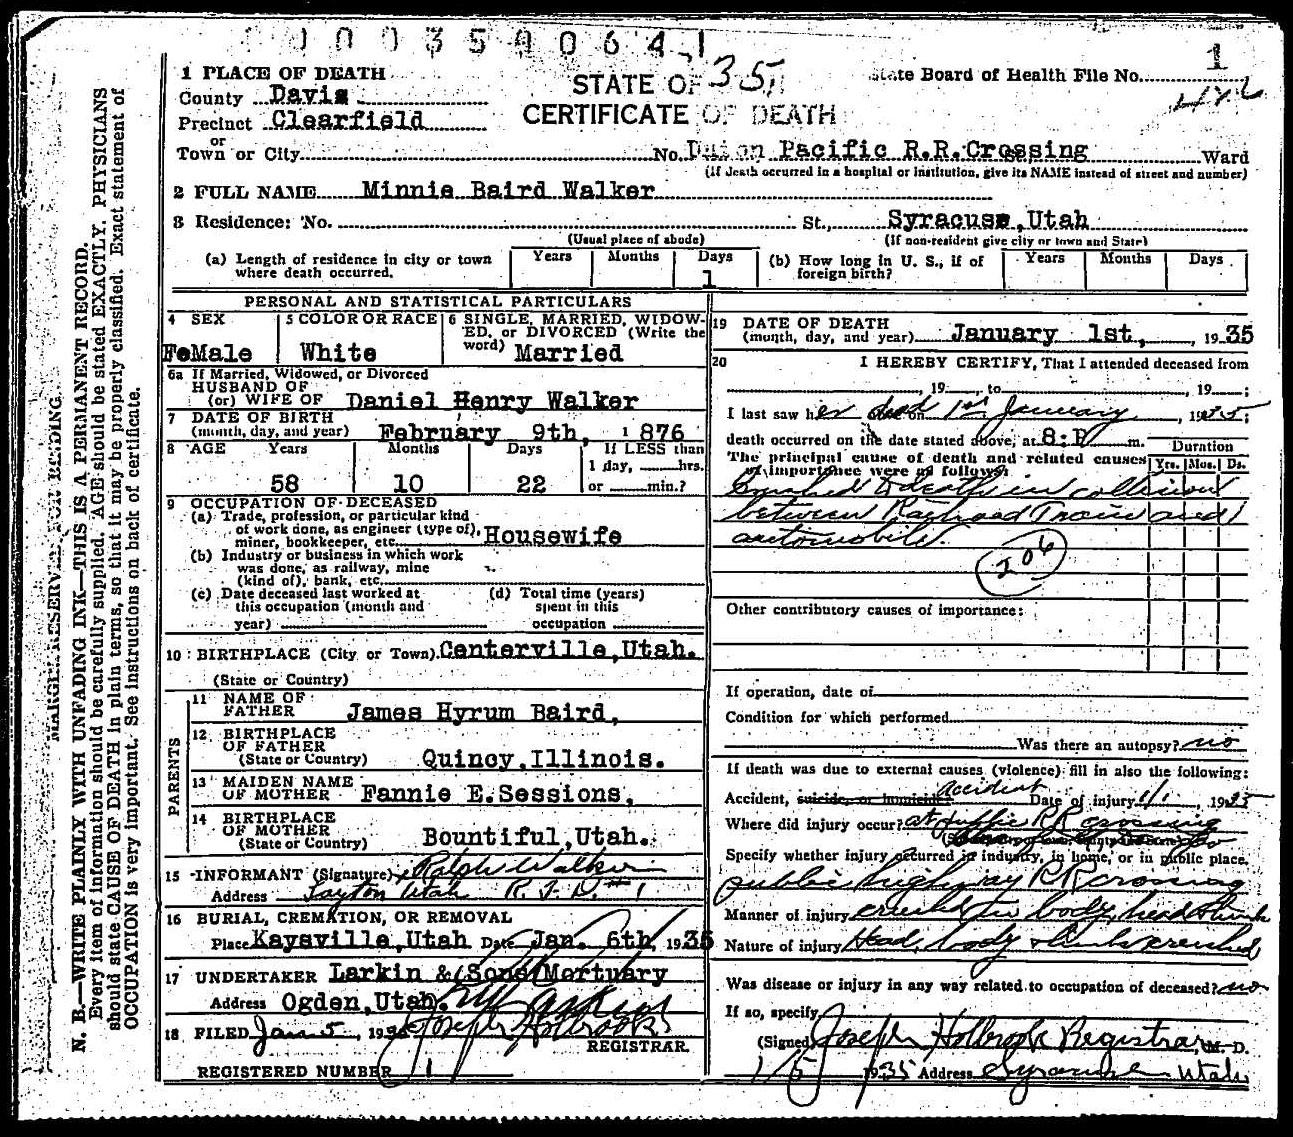 0003500641
1
1 PLACE OF DEATH
STATE OF
35
State Board of Health File No.
County Davis
Precinct Clearfield
CERTIFICATE OF DEATH
or
Town or City No. Union Pacific R.R. Crossing Ward
(If death occurred in a hospital or institution, give its NAME instead of street and number)
2 FULL NAME Minnie Baird Walker
3 Residence: No. St., Syracuse, Utah
(Usual place of abode) (If non-resident give city or town and State)
(a) Length of residence in city or town where death occurred. Years Months Days 1
(b) How long in U. S., if of foreign birth? Years Months Days
PERSONAL AND STATISTICAL PARTICULARS
4 SEX FeMale
5 COLOR OR RACE White
6 SINGLE, MARRIED, WIDOWED, or DIVORCED (Write the word) Married
6a If Married, Widowed, or Divorced
HUSBAND OF
(or) WIFE OF Daniel Henry Walker
7 DATE OF BIRTH
(month, day, and year) February 9th, 1876
8 AGE Years Months Days If LESS than
1 day, hrs.
58 10 22 or min.?
9 OCCUPATION OF DECEASED
(a) Trade, profession, or particular kind
of work done, as engineer (type of),
miner, bookkeeper, etc. Housewife
(b) Industry or business in which work
was done, as railway, mine
(kind of), bank, etc.
(c) Date deceased last worked at
this occupation (month and
year)
(d) Total time (years)
spent in this
occupation
10 BIRTHPLACE (City or Town) Centerville, Utah.
(State or Country)
PARENTS
11 NAME OF
FATHER James Hyrum Baird,
12 BIRTHPLACE
OF FATHER
(State or Country) Quincy, Illinois.
13 MAIDEN NAME
OF MOTHER Fannie E. Sessions,
14 BIRTHPLACE
OF MOTHER
(State or Country) Bountiful, Utah.
15 INFORMANT (Signature) Ralph Walker
Address Layton Utah R.F.D. #1
16 BURIAL, CREMATION, OR REMOVAL
Place Kaysville, Utah Date Jan. 6th, 1935
17 UNDERTAKER Larkin & Sons Mortuary
Address Ogden, Utah.
18 FILED Jan 5, 1935 Joseph Holbrook
REGISTRAR
REGISTERED NUMBER 1
19 DATE OF DEATH
(month, day, and year) January 1st, 1935
20 I HEREBY CERTIFY, That I attended deceased from
, 19 to , 19 ;
I last saw her dead 1st January, 1935;
death occurred on the date stated above, at 8:P m.
The principal cause of death and related causes
of importance were as follows:
Duration
Yrs. Mos. Ds.
Crushed to death in collision
between Railroad Train and
automobile.
206
Other contributory causes of importance:
If operation, date of
Condition for which performed
Was there an autopsy? no
If death was due to external causes (violence) fill in also the following:
accident
Accident, suicide, or homicide? Date of injury 1/1, 1935
Where did injury occur? at public RR crossing
Specify whether injury occurred in industry, in home, or in public place.
public highway RR crossing
Manner of injury crushed in body, head & limbs
Nature of injury Head, body & limbs crushed
Was disease or injury in any way related to occupation of deceased? no
If so, specify
(Signed) Joseph Holbrook Registrar, M. D.
1/5 1935 Address Syracuse Utah
MARGIN RESERVED FOR BINDING
N. B.—WRITE PLAINLY WITH UNFADING INK—THIS IS A PERMANENT RECORD.
Every item of information should be carefully supplied. AGE should be stated EXACTLY. PHYSICIANS
should state CAUSE OF DEATH in plain terms, so that it may be properly classified. Exact statement of
OCCUPATION is very important. See instructions on back of certificate.